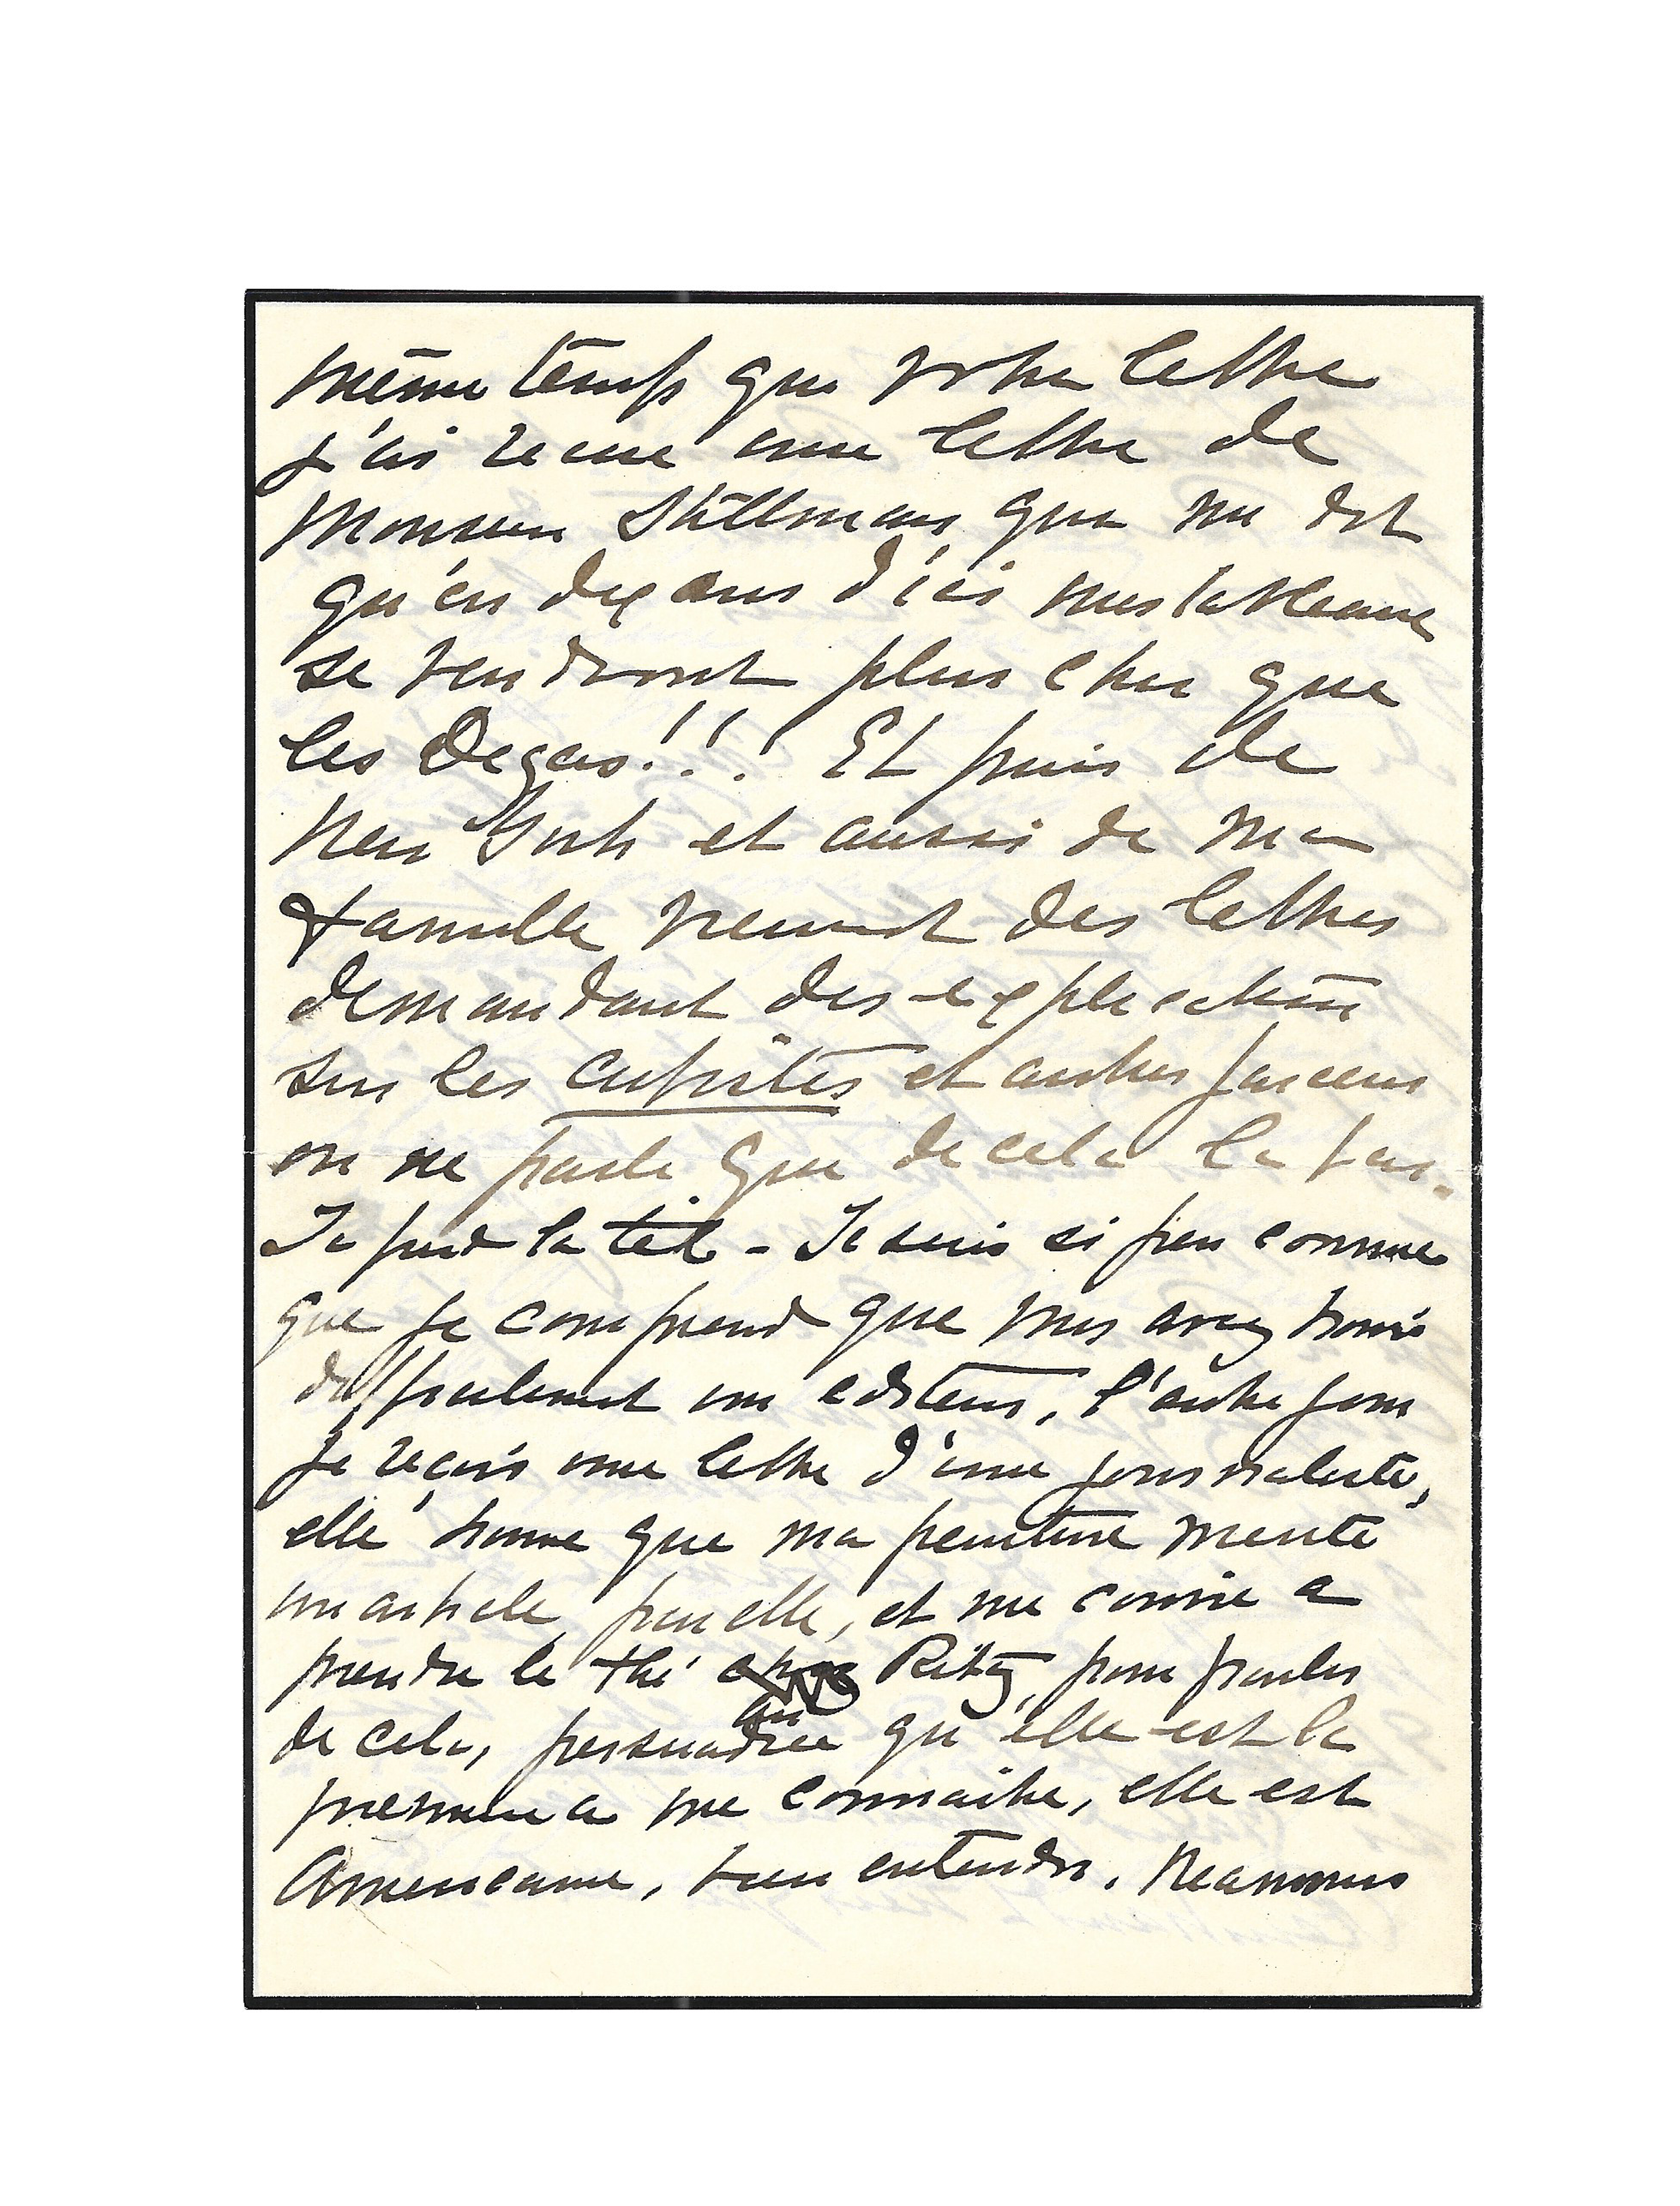 même temps que votre lettre
j'ai recue une lettre de
Monsieur Stillman, que me dit
qu'en dix ans d'ici mes tableaux
se vendront plus cher que
les Degas!!! Et puis de
New York et aussi de ma
famille viennent des lettres
demandant des explications
sur les cubistes et autres farceurs
on ne parle que de cela la bas.
Je perd la tête - Je suis si peu connue
que je comprend que vous avez trouvé
difficilement un editeur, l'autre jour
je reçois une lettre d'une journaliste,
elle trouve que ma peinture merite
un article par elle, et me convie a
prendre le thé au Ritz, pour parler
de cela, persuadée qu'elle est la
premiere a me connaitre, elle est
Americaine, bien entendu. Neanmoins